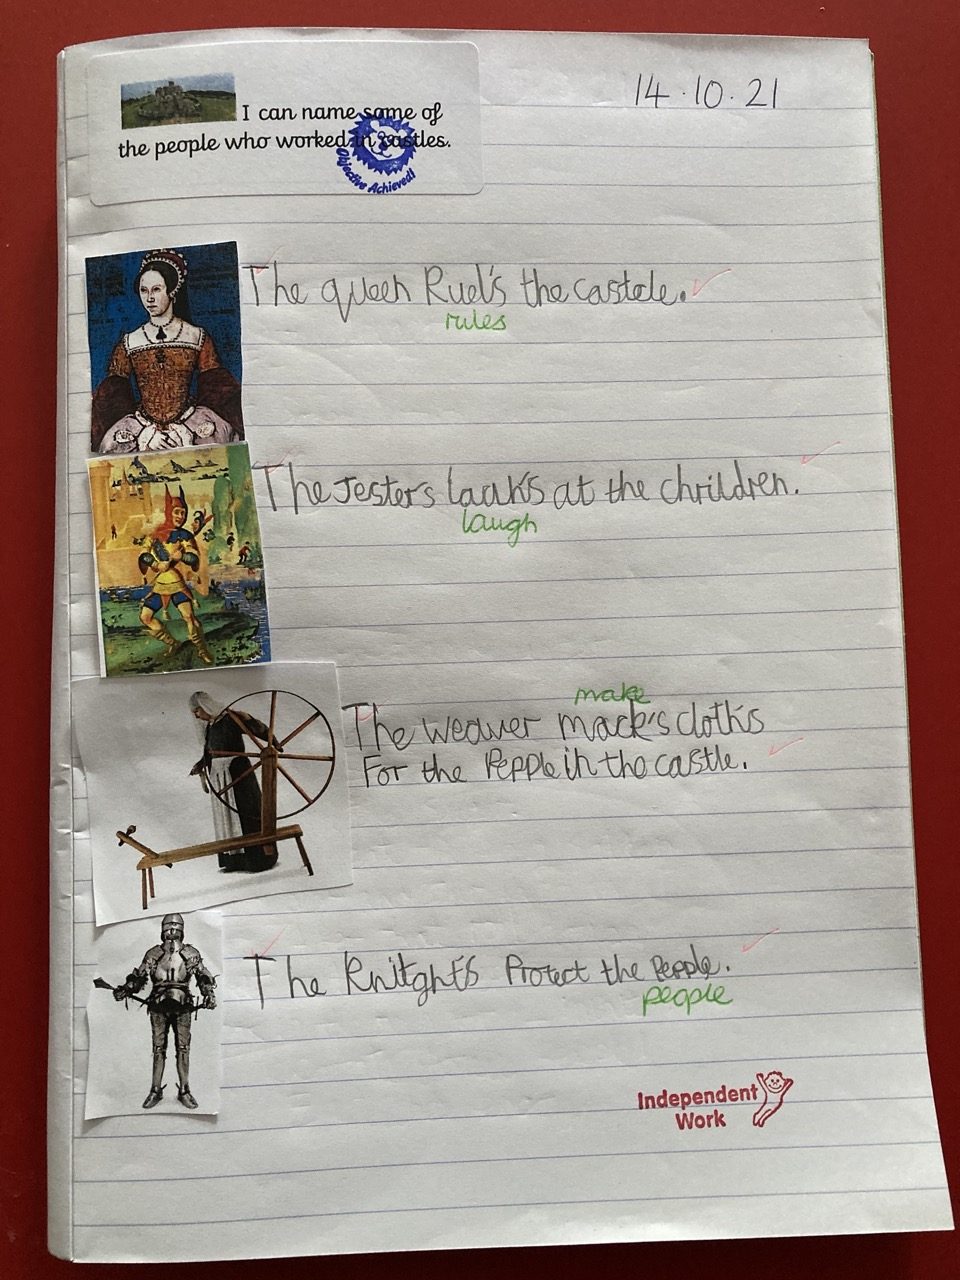 I can name some of
the people who worked in castles.
Objective Achieved!
14.10.21
The queen Ruel's the castele.
rules
The Jesters laaks at the chrildren.
laugh
make
The weaver mack's cloths
For the Pepple in the castle.
The Knitghts Protect the Pepple.
people
Independent
Work